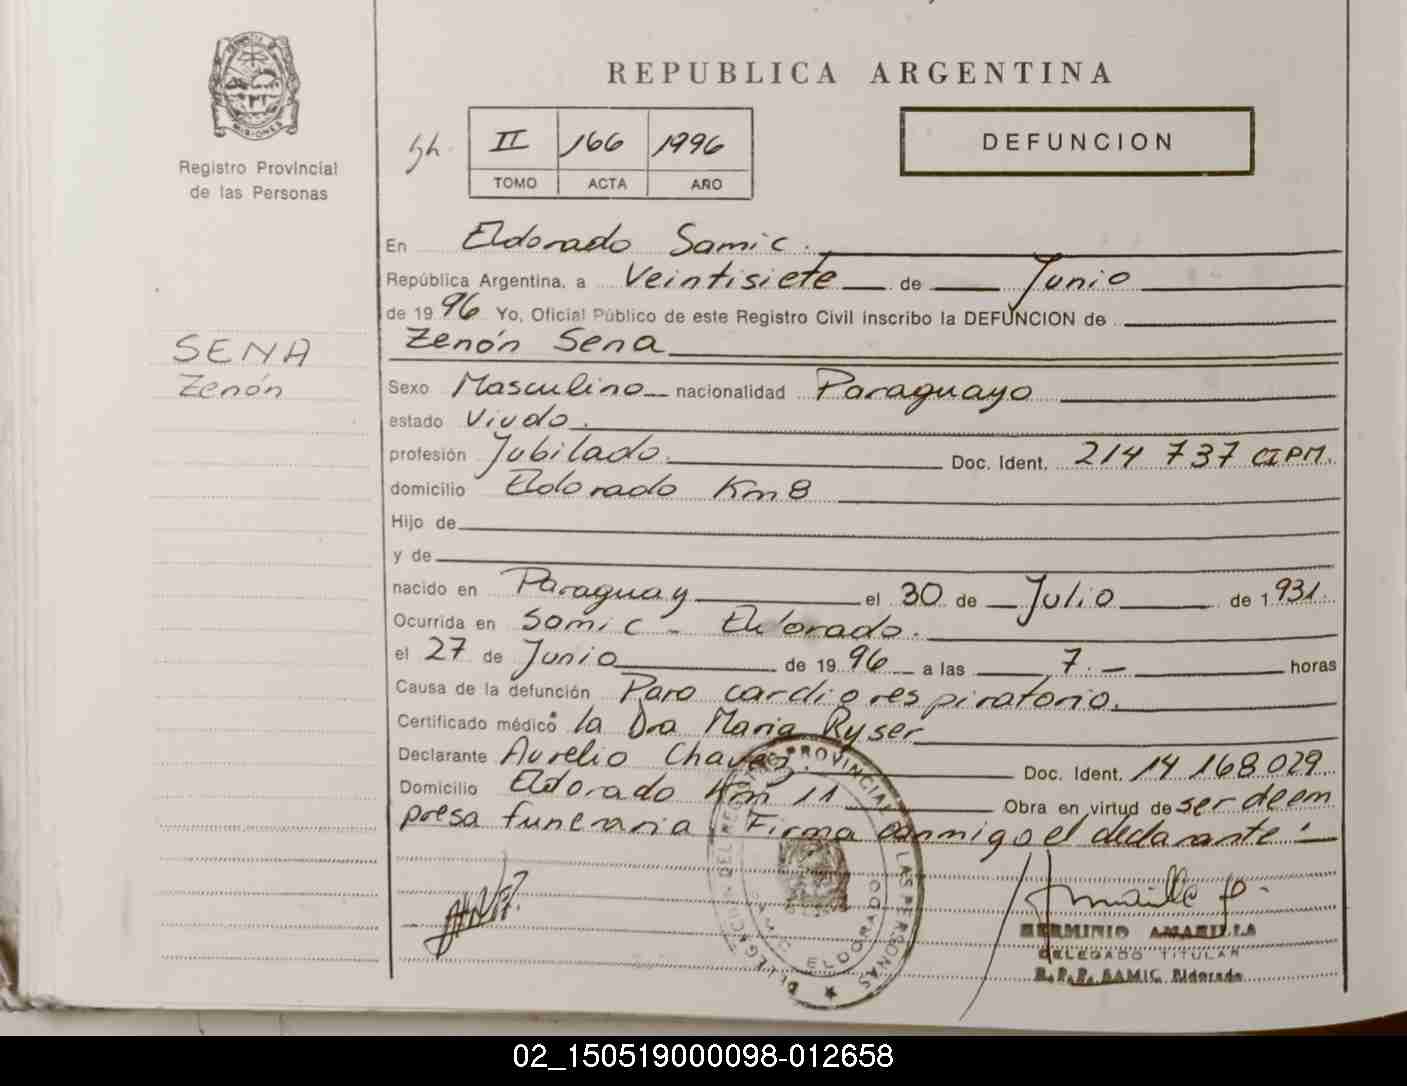 REPUBLICA ARGENTINA
MISIONES
Registro Provincial
de las Personas
II 166 1996
TOMO ACTA AÑO
DEFUNCION
En Eldorado Samic.
República Argentina, a Veintisiete de Junio
de 1996 Yo, Oficial Público de este Registro Civil inscribo la DEFUNCION de
Zenón Sena
SENA
Zenón
Sexo Masculino nacionalidad Paraguayo
estado Viudo.
profesión Jubilado. Doc. Ident. 214 737 CIPM.
domicilio Eldorado Km 8
Hijo de
y de
nacido en Paraguay el 30 de Julio de 1931.
Ocurrida en Samic - Eldorado.
el 27 de Junio de 1996 a las 7.- horas
Causa de la defunción Paro cardiorespiratorio.
Certificado médico la Dra Maria Ryser
Declarante Aurelio Chavez. Doc. Ident. 14 168.029
Domicilio Eldorado Km 11 Obra en virtud de ser de em
presa funeraria Firma conmigo el declarante:
DELEGACION DEL REGISTRO PROVINCIAL DE LAS PERSONAS
SAMIC ELDORADO
HERMINIO AMARILLA
DELEGADO TITULAR
R.P.P. SAMIC Eldorado
02_150519000098-012658